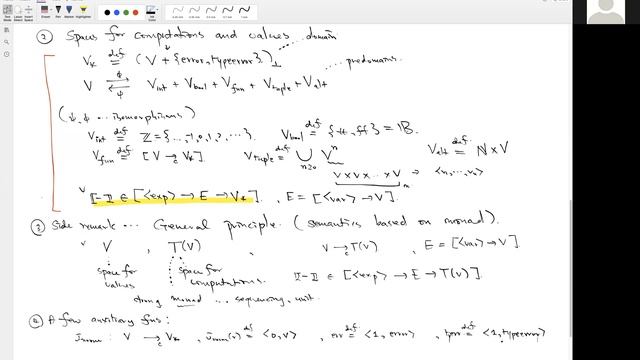 ② Spaces for computations and values
domain
V* def= (V + {error, typeerror})⊥
predomains.
V ⇄ V_int + V_bool + V_fun + V_tuple + V_alt
φ
ψ
(ψ, φ ... isomorphisms)
V_int def= Z = {..., -1, 0, 1, 2, ...}. V_bool def= {tt, ff} = B.
V_fun def= [V →c V*] V_tuple def= ∪ n≥0 Vⁿ V_alt def= N × V
V × V × ... × V n → <v₁, ..., vₙ>
⟦-⟧ ∈ [<exp> → E → V*], E = [<var> → V].
③ Side remark ... General principle. (semantics based on monad).
V, T(V), V →c T(V), E = [<var> → V].
space for values
space for computations.
⟦-⟧ ∈ [<exp> → E → T(V)].
strong monad ... sequencing, unit.
④ A few auxiliary fns:
ι_norm : V →c V*, ι_norm(v) def= <0, v>, err def= <1, error>, tyerr def= <1, typeerror>